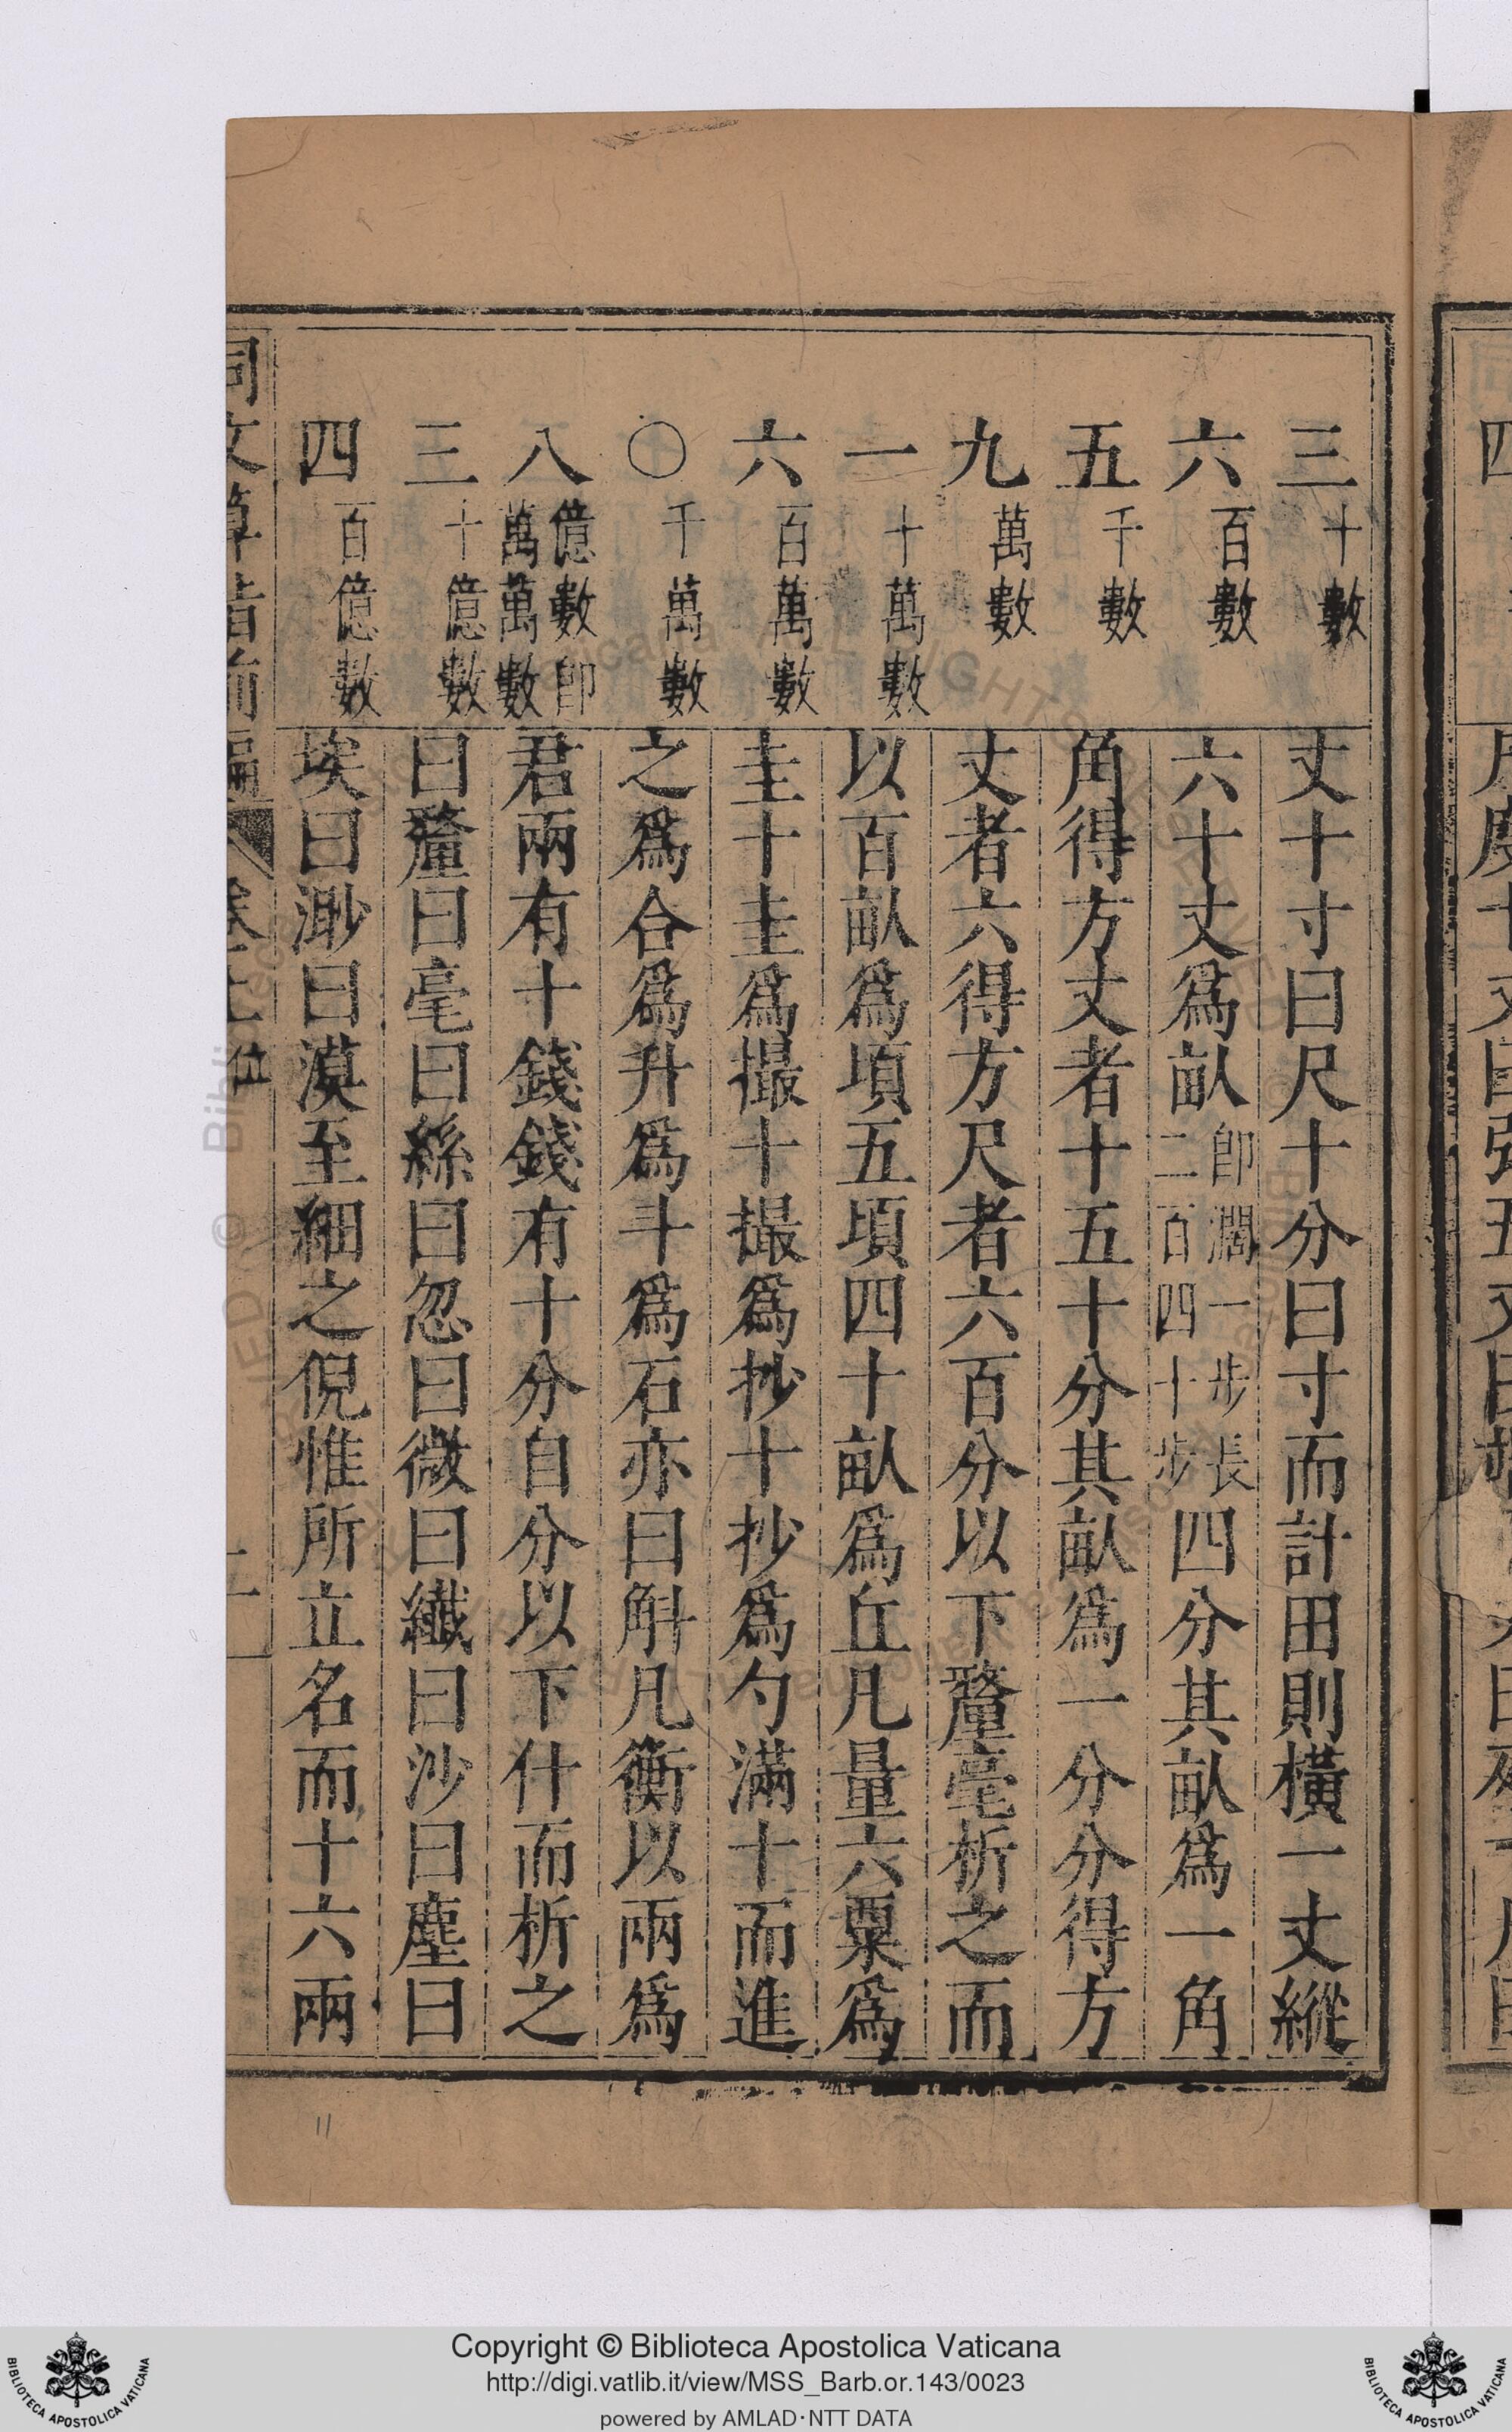 三十數
六百數
五千數
九萬數
一十萬數
六百萬數
〇千萬數
八億數卽萬萬數
三十億數
四百億數
丈十寸曰尺十分曰寸而計田則橫一丈縱
六十丈爲畝卽濶一步長二百四十步四分其畝爲一角
角得方丈者十五十分其畝爲一分分得方
丈者六得方尺者六百分以下釐毫析之而
以百畝爲頃五頃四十畝爲丘凡量六粟爲
圭十圭爲撮十撮爲抄十抄爲勺滿十而進
之爲合爲升爲斗爲石亦曰斛凡衡以兩爲
君兩有十錢錢有十分自分以下什而析之
曰釐曰毫曰絲曰忽曰微曰纖曰沙曰塵曰
埃曰渺曰漠至細之倪惟所立名而十六兩
同文算指前編
11
Copyright © Biblioteca Apostolica Vaticana
http://digi.vatlib.it/view/MSS_Barb.or.143/0023
powered by AMLAD·NTT DATA
BIBLIOTECA APOSTOLICA VATICANA
BIBLIOTECA APOSTOLICA VATICANA